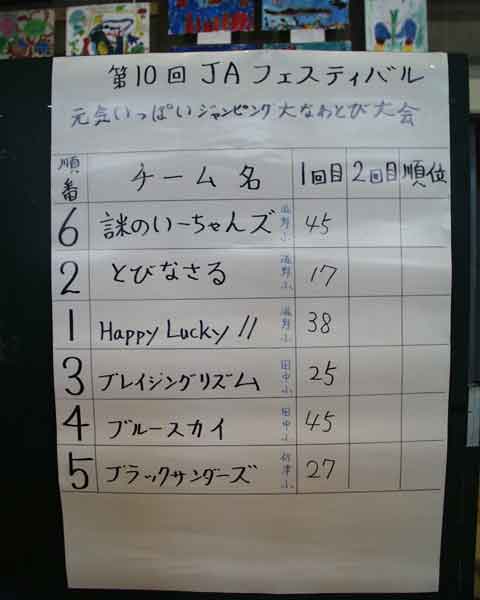 第10回 JAフェスティバル
元気いっぱいジャンピング大なわとび大会
順番 チーム名 1回目 2回目 順位
6 謎のいーちゃんズ 滋野小 45
2 とびなさる 滋野小 17
1 Happy Lucky !! 滋野小 38
3 ブレイジングリズム 田中小 25
4 ブルースカイ 田中小 45
5 ブラックサンダーズ 祢津小 27